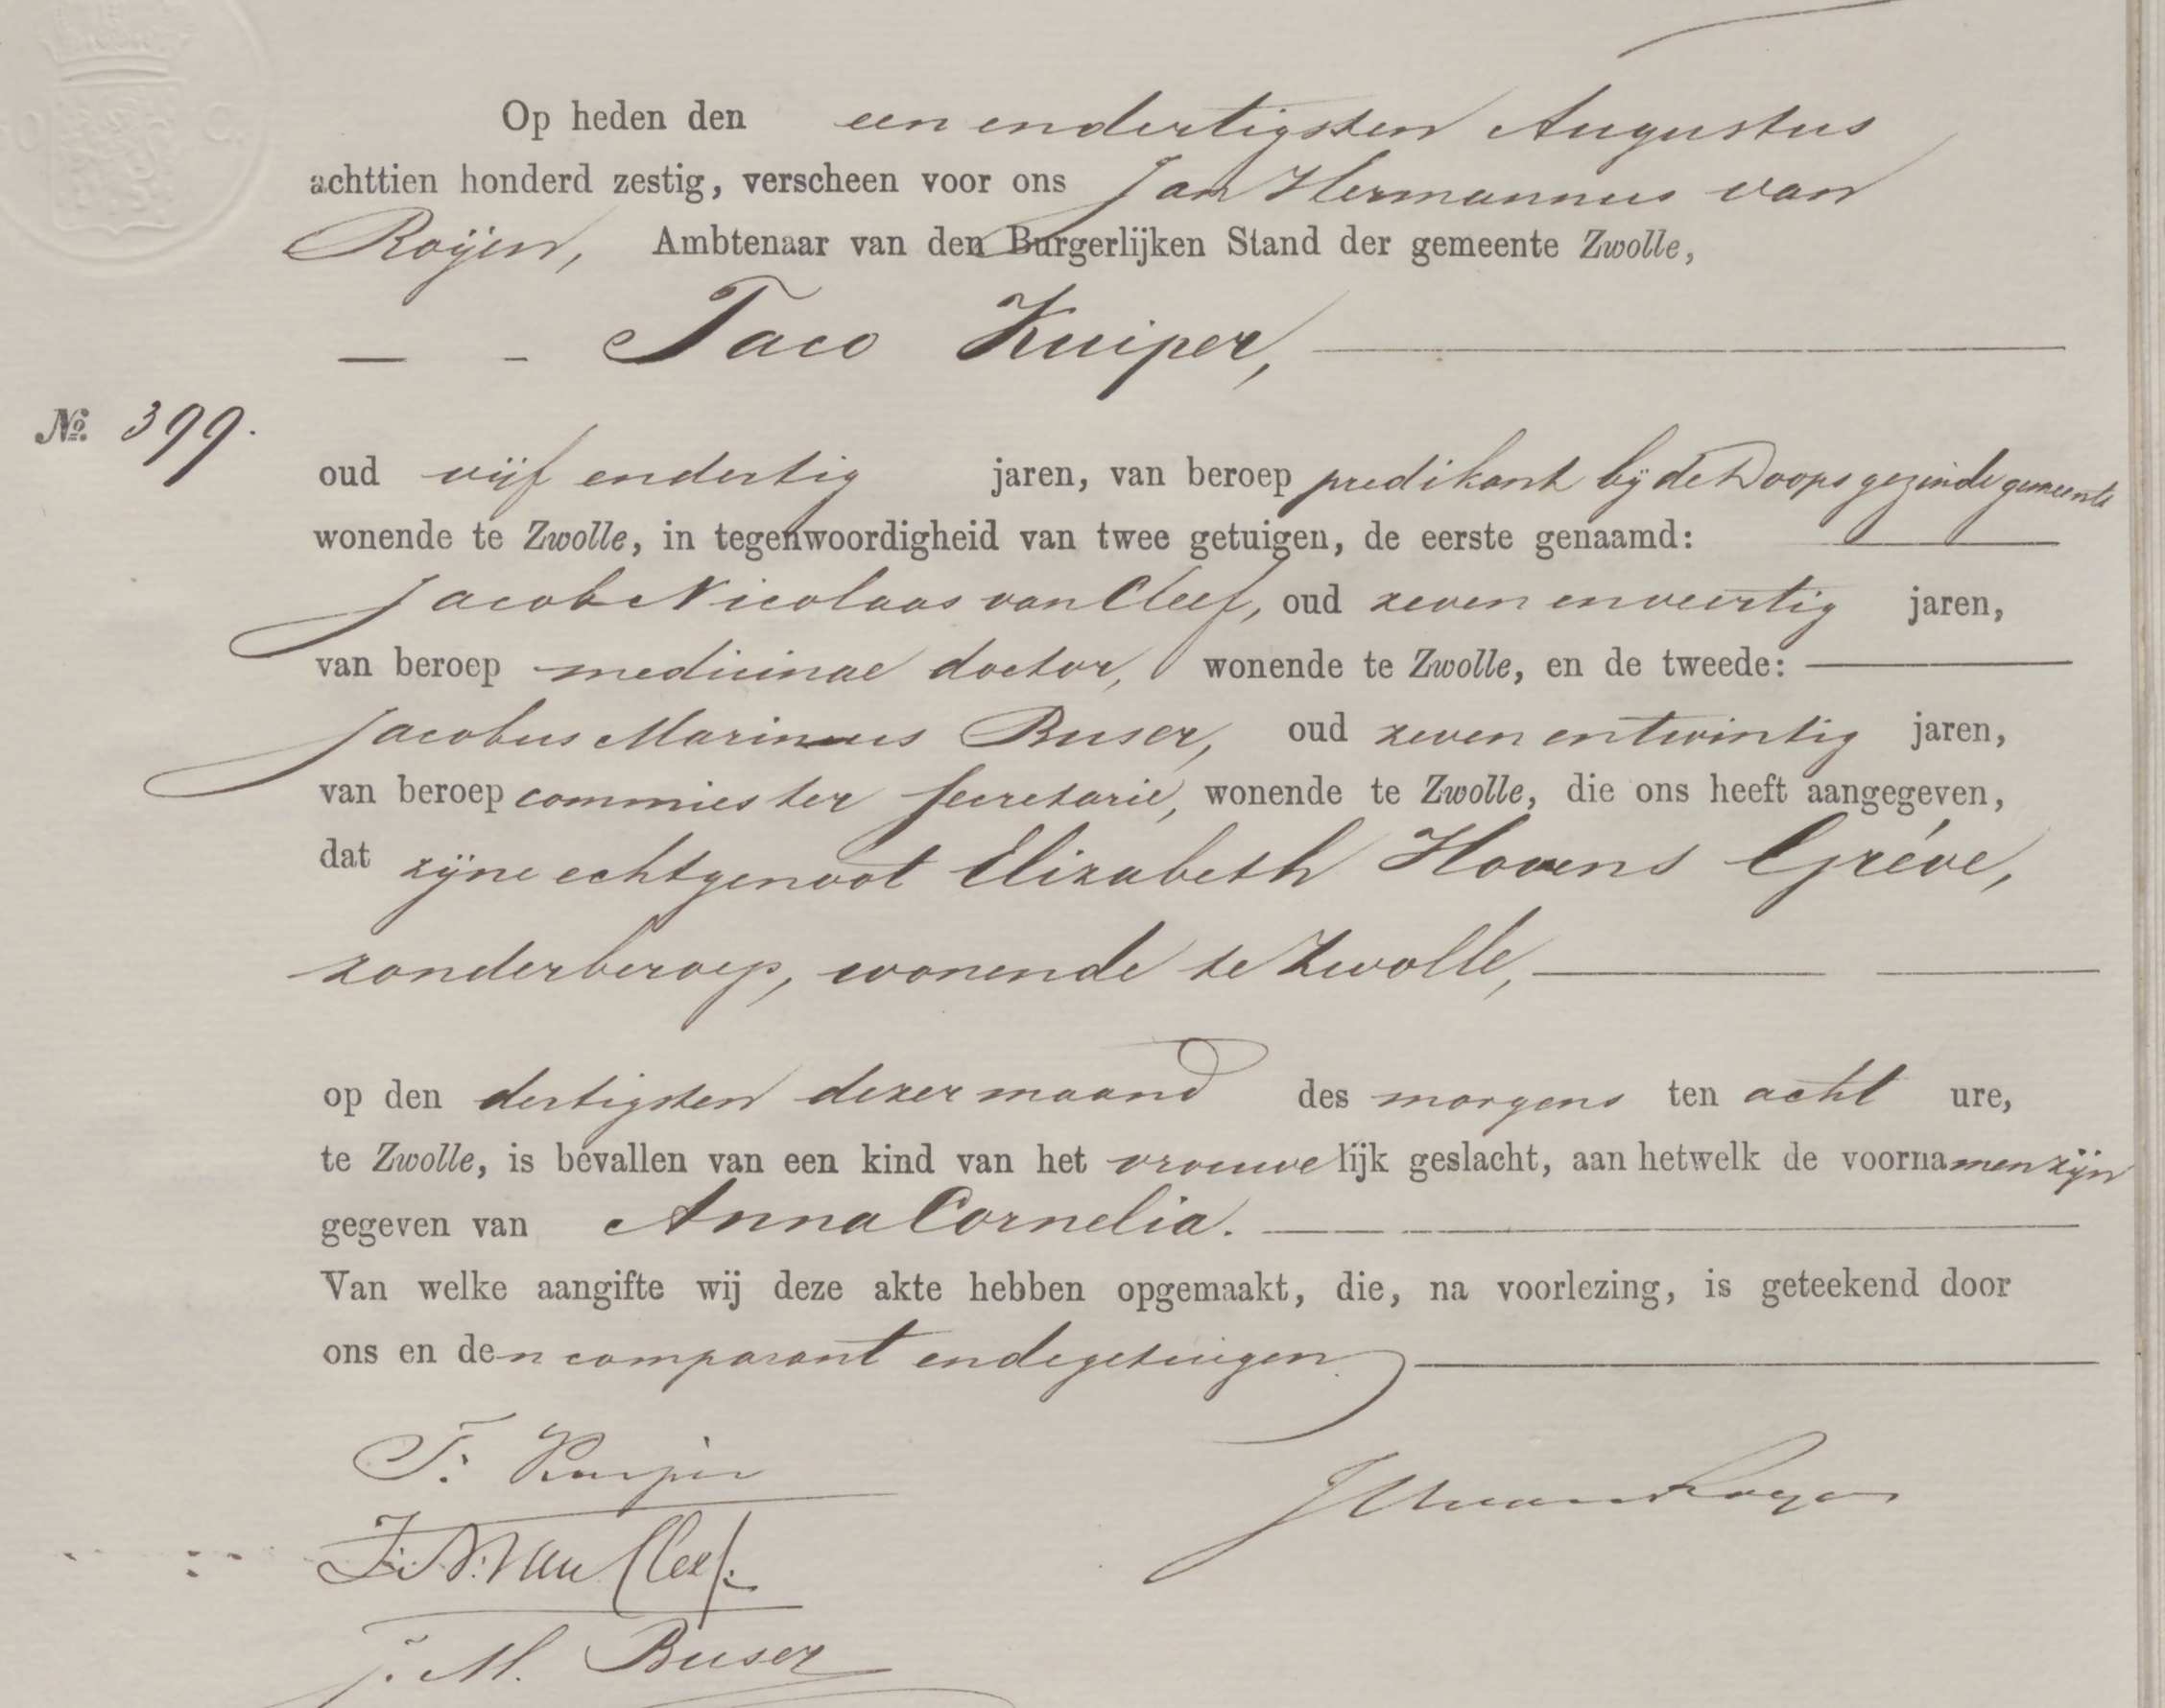 Op heden den een en dertigsten Augustus
achttien honderd zestig, verscheen voor ons Jan Hermannus van
Roijen, Ambtenaar van den Burgerlijken Stand der gemeente Zwolle,
Taco Kuiper,
No. 399.
oud vijf en dertig jaren, van beroep predikant bij de Doopsgezinde gemeente
wonende te Zwolle, in tegenwoordigheid van twee getuigen, de eerste genaamd:
Jacob Nicolaas van Cleef, oud zeven en veertig jaren,
van beroep medicinae doctor, wonende te Zwolle, en de tweede:
Jacobus Marinus Buser, oud zeven en twintig jaren,
van beroep commies ter secretarie, wonende te Zwolle, die ons heeft aangegeven,
dat zijne echtgenoot Elizabeth Hovens Gréve,
zonder beroep, wonende te Zwolle,
op den dertigsten dezer maand des morgens ten acht ure,
te Zwolle, is bevallen van een kind van het vrouwelijk geslacht, aan hetwelk de voornamen zijn
gegeven van Anna Cornelia.
Van welke aangifte wij deze akte hebben opgemaakt, die, na voorlezing, is geteekend door
ons en den comparant en de getuigen.
T. Kuiper
JHvanRoyen
J. N. van Cleef.
J. M. Buser